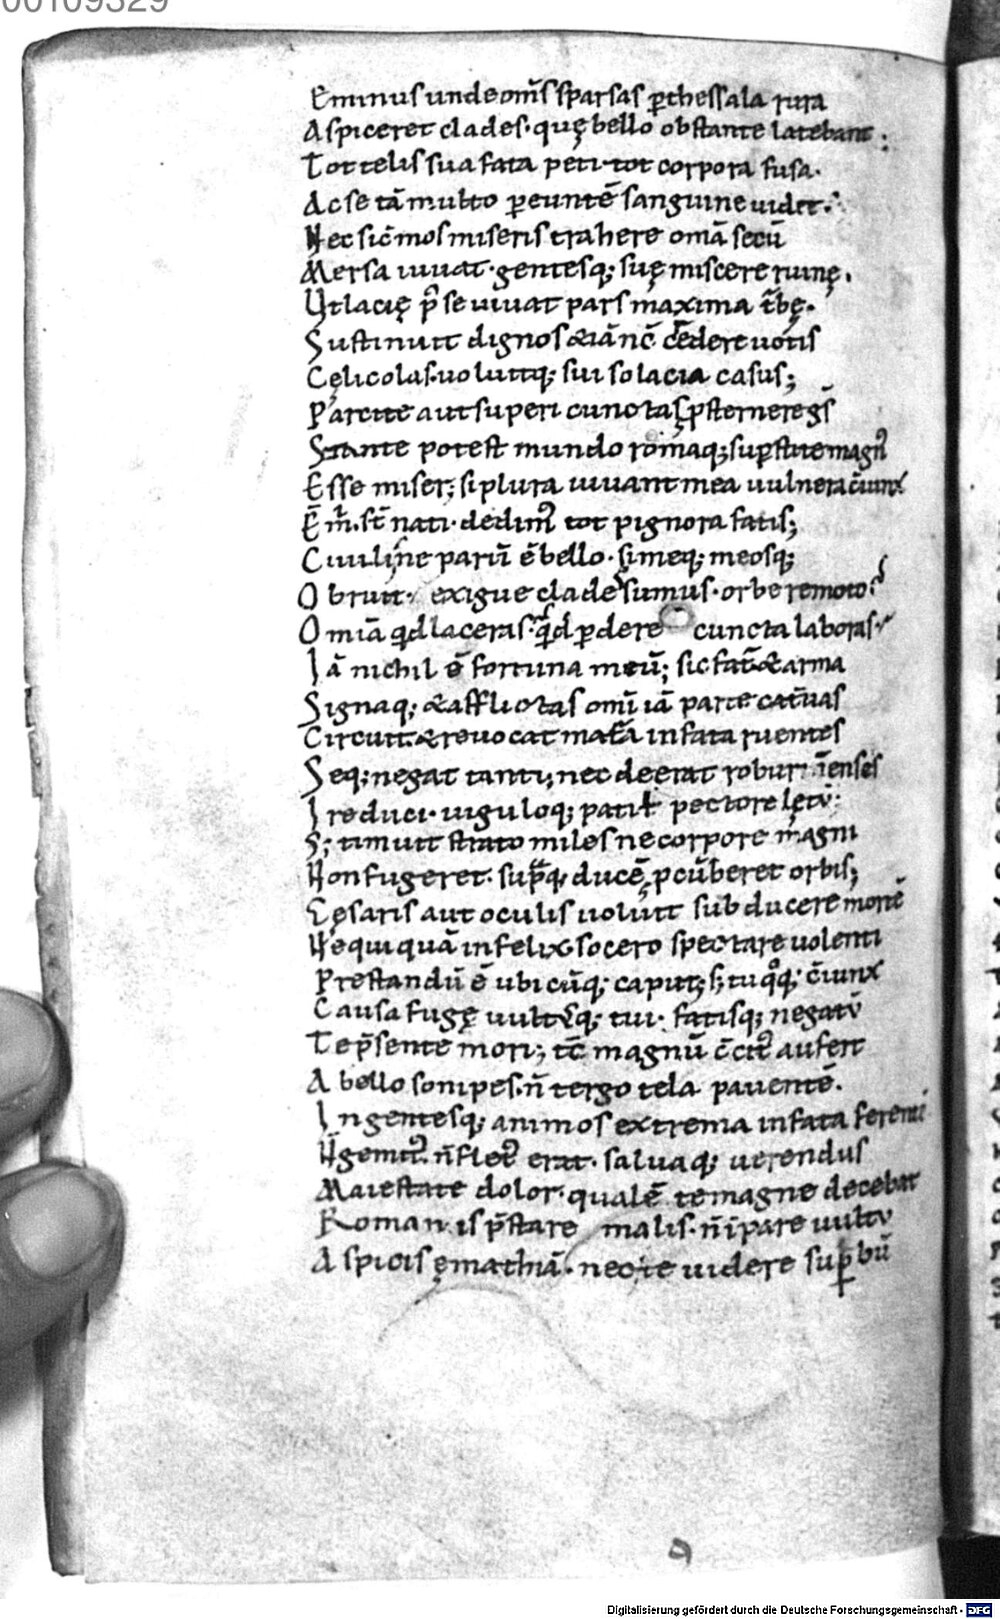 00109329
Eminus unde om̅s sparsas ꝑthessala rura
Aspiceret clades· quę bello obstante latebant;
Tot telis sua fata peti· tot corpora fusa·
Ac se tā multo ꝑeuntē sanguine uidit·
Nec sic̄ mos miseris trahere omā secū
Mersa iuuat· gentesq; suę miscere ruinę·
Ut lacię p̄ se uiuat pars maxima t̄bę·
Sustinuit dignos & iā nc̄ c̄dere uotis
Cęlicolas· uoluitq; sui solacia casus;
Parcite aut superi cunctas ꝓsternere gs̄
Stante potest mundo romaq; suꝑstite magn᷒
Esse miser; si plura iuuant mea uulnera c̄iunx
Ē m̄· st̄ nati· dedim᷒ tot pignora fatis;
Ciuiline parū ē bello· si meq; meosq;
Obruit· exigue clades sumus· orbe remoto
Omīa qd laceras· qd ꝑdere cuncta laboras
Iā nichil ē fortuna meū; sic fat̄ & arma
Signaq; & afflictas omī iā parte cat̄uas
Circuit & reuocat mat̄ā in fata ruentes
Seq; negat tanti; nec deerat robur ī enses
Ire duci· iuguloq; pati ł pectore lętū:
S; timuit strato miles ne corpore magni
Non fugeret· sup̄q; ducē ꝓcūberet orbis;
Cęsaris aut oculis uoluit subducere mortē
Nequiquā infelix socero spectare uolenti
Prestandū ē ubicūq; caput; s; tu qͦq; c̄iunx
Causa fugę uultusq; tui· fatisq; negatū
Te p̄sente mori; tc̄ magnū c̄cit᷒ aufert
A bello sonipes· n̄ tergo tela pauentē·
Ingentesq; animos extrema in fata ferenti
N̄ gemit᷒· n̄ flet᷒ erat· saluaq; uerendus
Maiestate dolor· qualē te magne decebat
Romanis p̄stare malis· n̄ īpare uultu
Aspicis ęmathiā· nec te uidere suꝑbū
Digitalisierung gefördert durch die Deutsche Forschungsgemeinschaft - DFG